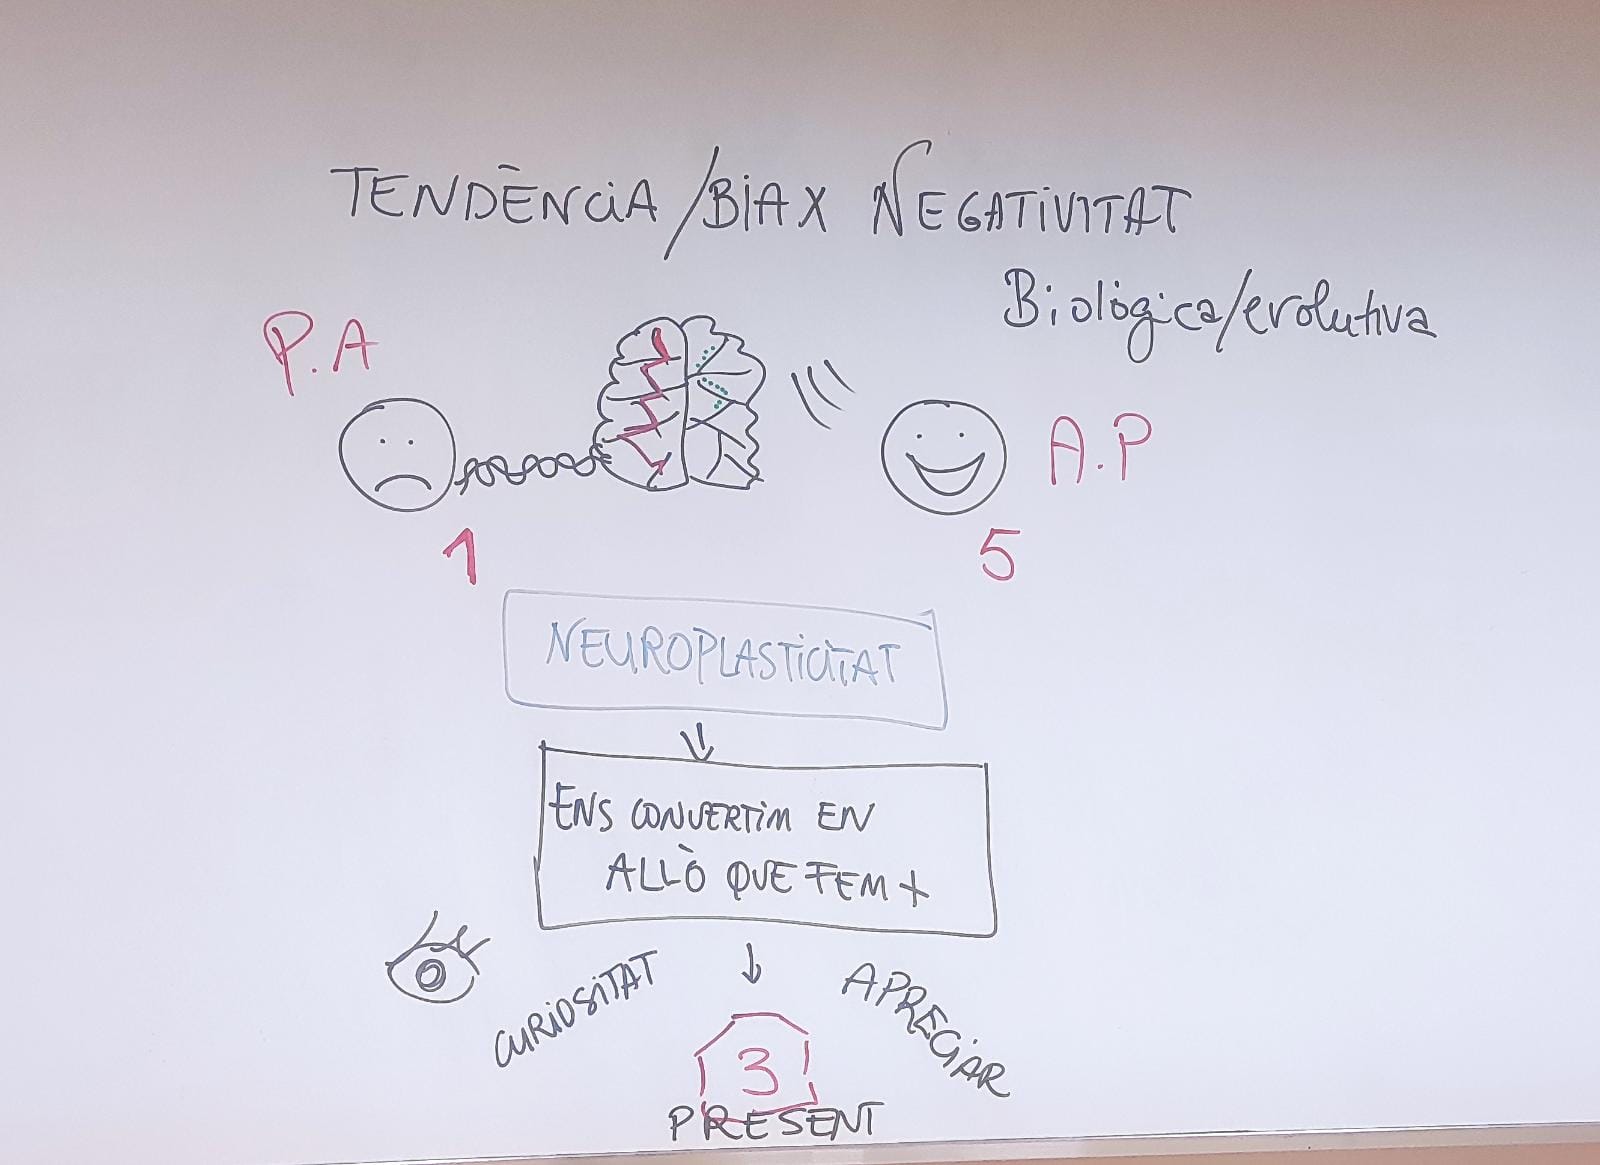 TENDÈNCIA/BIAX NEGATIVITAT
Biològica/evolutiva
P.A
A.P
1
5
NEUROPLASTICITAT
ENS CONVERTIM EN
ALLÒ QUE FEM +
CURIOSITAT
APRECIAR
3
PRESENT